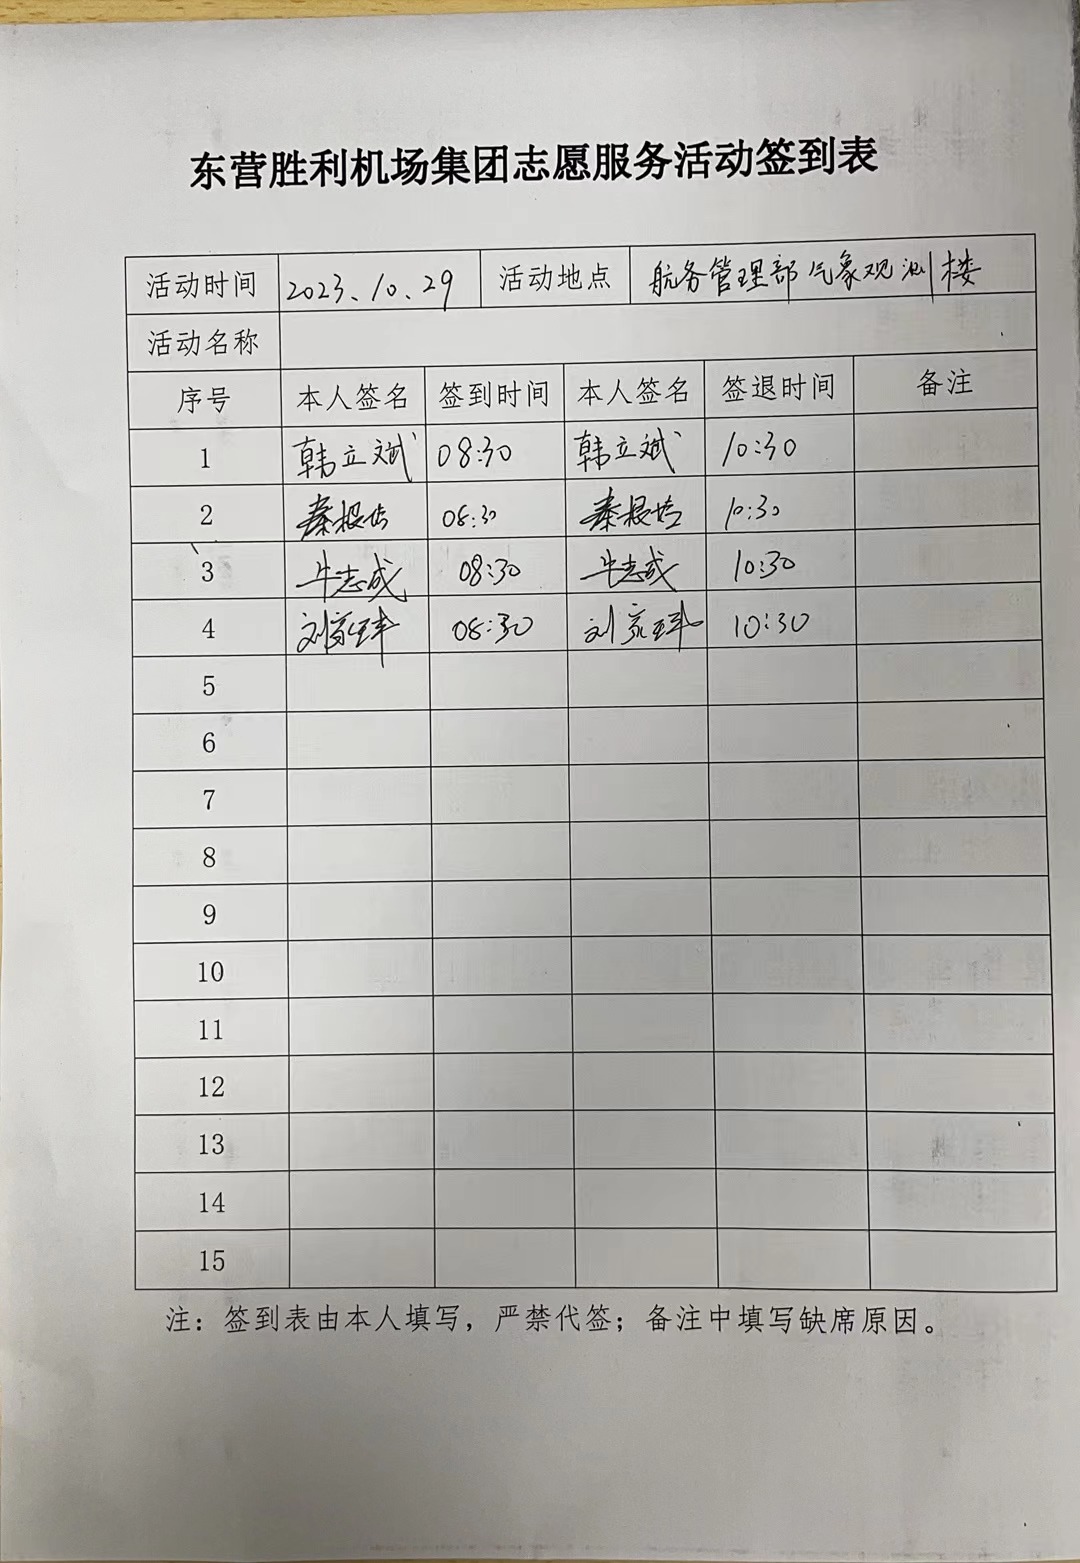 东营胜利机场集团志愿服务活动签到表
活动时间 2023.10.29 活动地点 航务管理部气象观测楼
活动名称
序号 本人签名 签到时间 本人签名 签退时间 备注
1 韩立斌 08:30 韩立斌 10:30
2 秦根 08:30 秦根 10:30
3 牛志成 08:30 牛志成 10:30
4 刘家玮 08:30 刘家玮 10:30
5
6
7
8
9
10
11
12
13
14
15
注：签到表由本人填写，严禁代签；备注中填写缺席原因。